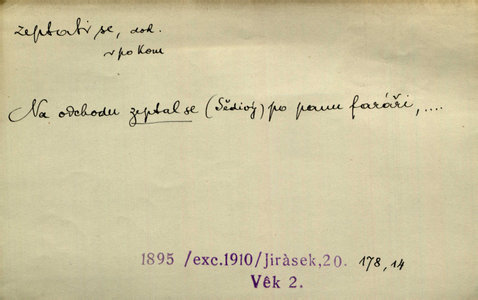 zeptati se, dok.
po kom
Na odchodu zeptal se (Šědivý) po panu faráři, ....
1895 /exc.1910/Jiràsek,20. 178,14
Vêk 2.